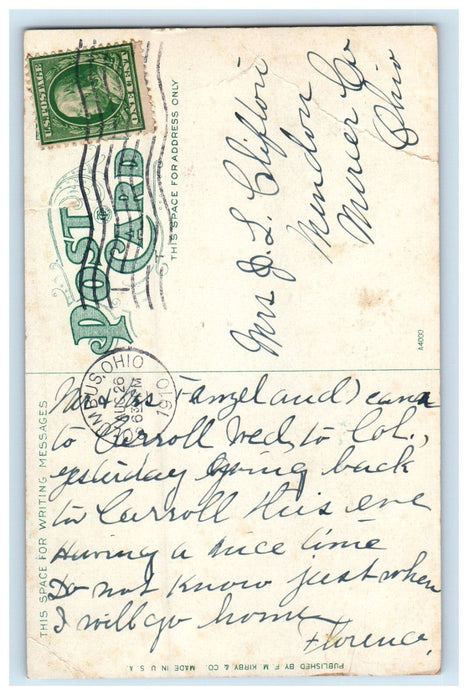 U.S. POSTAGE
ONE CENT
POST CARD
THIS SPACE FOR ADDRESS ONLY
Mrs J. L. Clifton
Mendon
Mercer Co
Ohio
A4000
COLUMBUS, OHIO
AUG 26
630 PM
1910
THIS SPACE FOR WRITING MESSAGES
Mr & Mrs and I came
to Carroll Wed, to Col.,
yesterday going back
to Carroll this eve
Having a nice time
Do not know just when
I will go home
Florence.
PUBLISHED BY F. M. KIRBY & CO. MADE IN U.S.A.